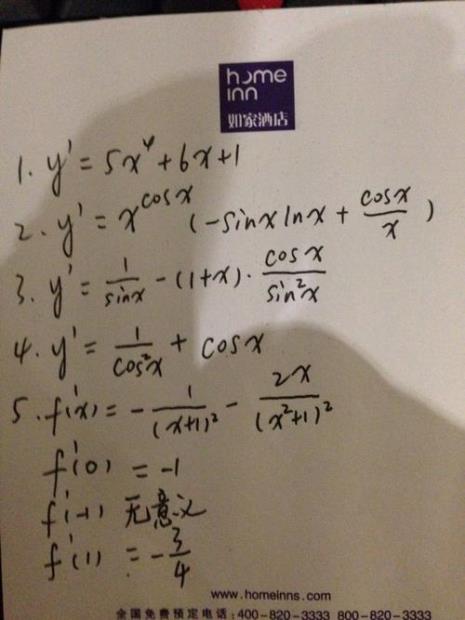 home
inn
如家酒店
1. y' = 5x⁴ + 6x + 1
2. y' = x^cosx (-sinx lnx + cosx/x)
3. y' = 1/sinx - (1+x)· cosx/sin²x
4. y' = 1/cos²x + cosx
5. f'(x) = - 1/(x+1)² - 2x/(x²+1)²
f'(0) = -1
f'(-1) 无意义
f'(1) = -3/4
www.homeinns.com
全国免费预定电话:400-820-3333 800-820-3333